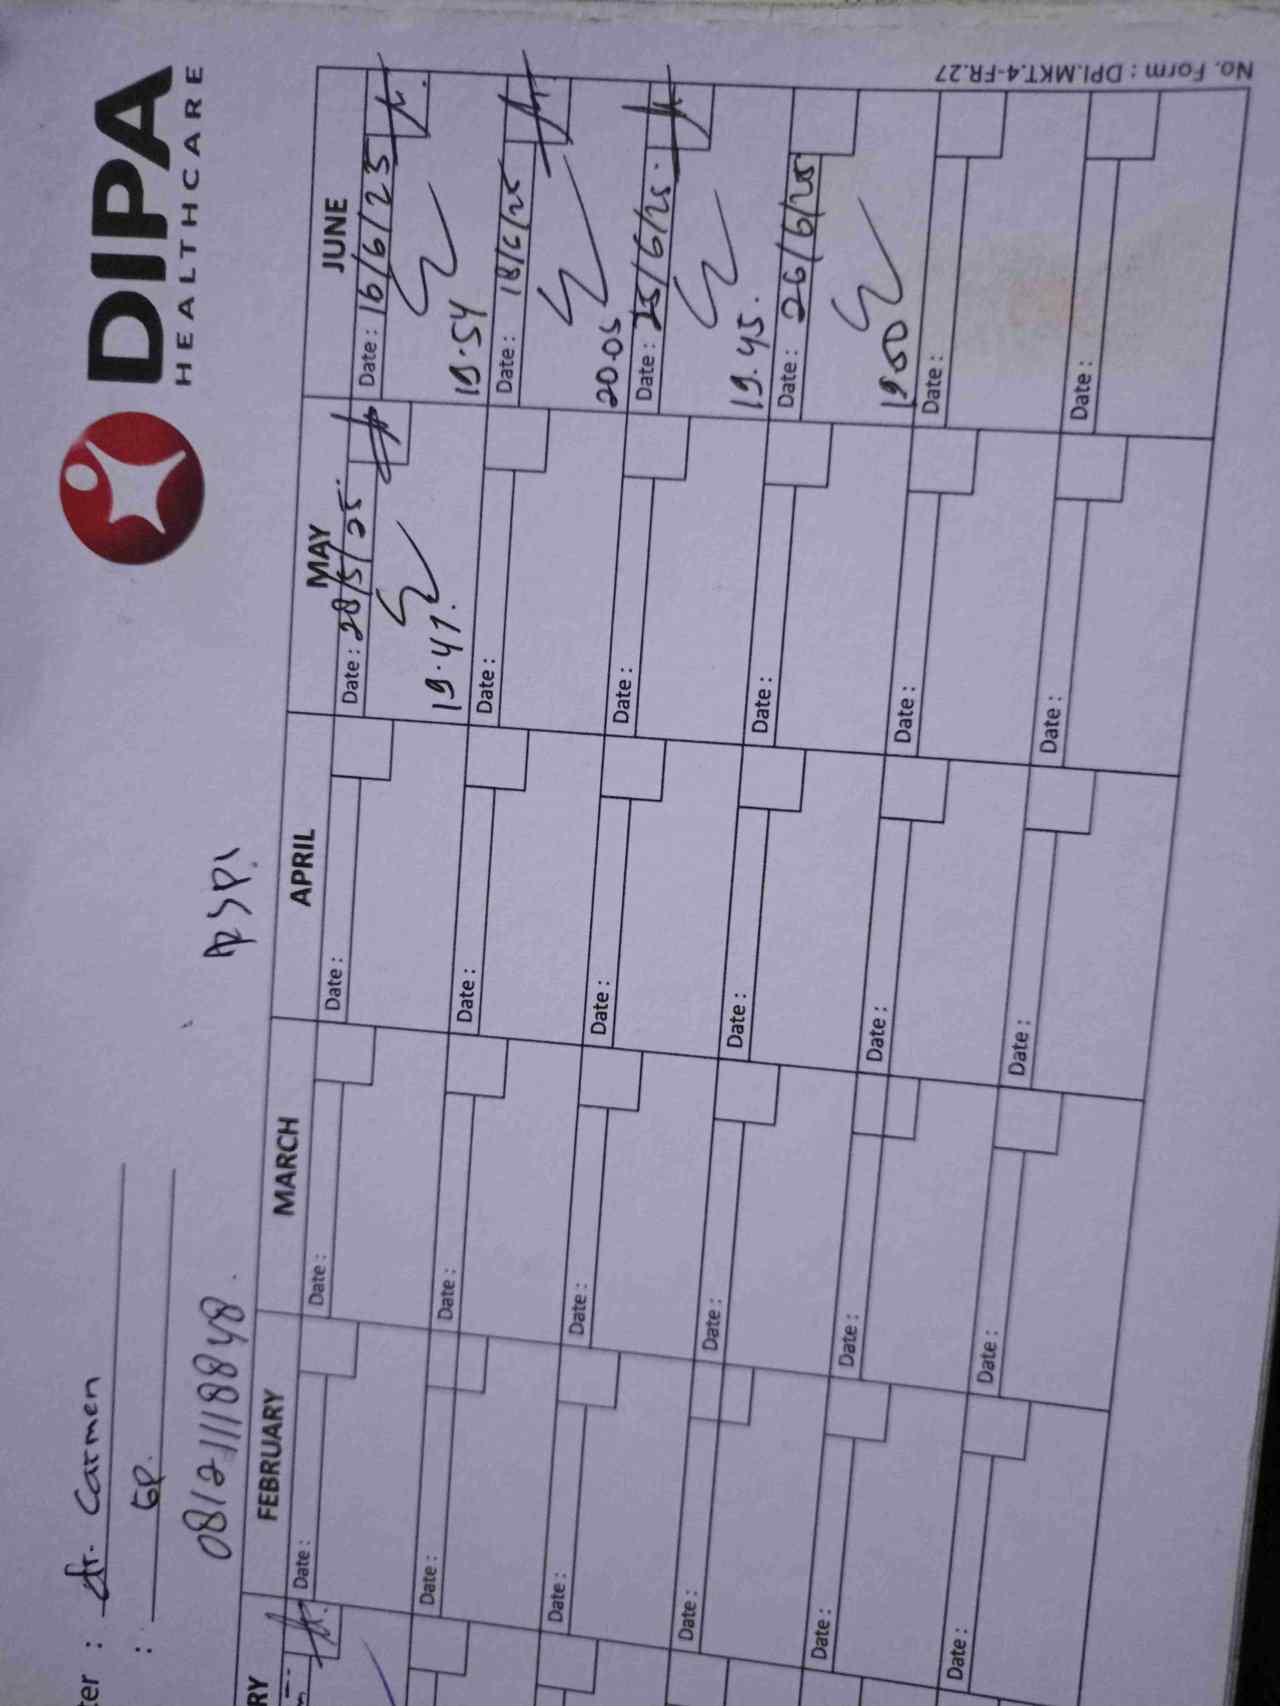 DIPA
HEALTHCARE
ter : dr. Carmen
: GP.
081211118848.
PSPI
RY FEBRUARY MARCH APRIL MAY JUNE
Date : Date : Date : Date : 28/5/25. Date : 16/6/25
19.47. 19.54
Date : Date : Date : Date : Date : 18/6/25
20.05
Date : Date : Date : Date : Date : 25/6/25.
19.45.
Date : Date : Date : Date : Date : 26/6/25
19.00
Date : Date : Date : Date : Date :
Date : Date : Date : Date : Date :
No. Form : DPI.MKT.4-FR.27